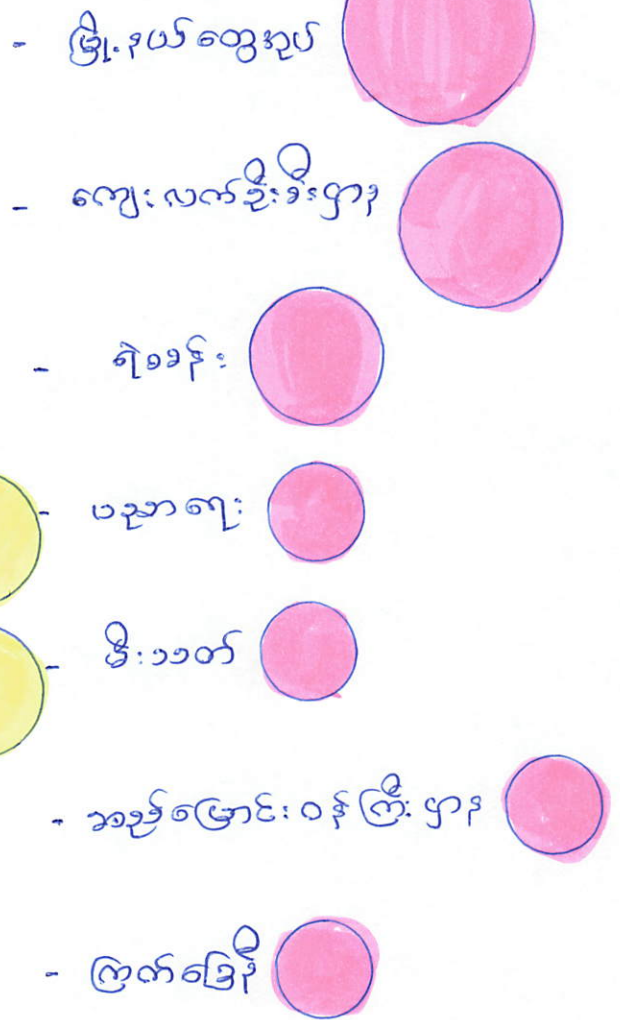 - မြို့နယ်ထွေအုပ်
- ကျေးလက်ဦးစီးဌာန
- ရဲစခန်း
- ပညာရေး
- မီးသတ်
- ဆည်မြောင်းဝန်ကြီးဌာန
- ကြက်ခြေနီ